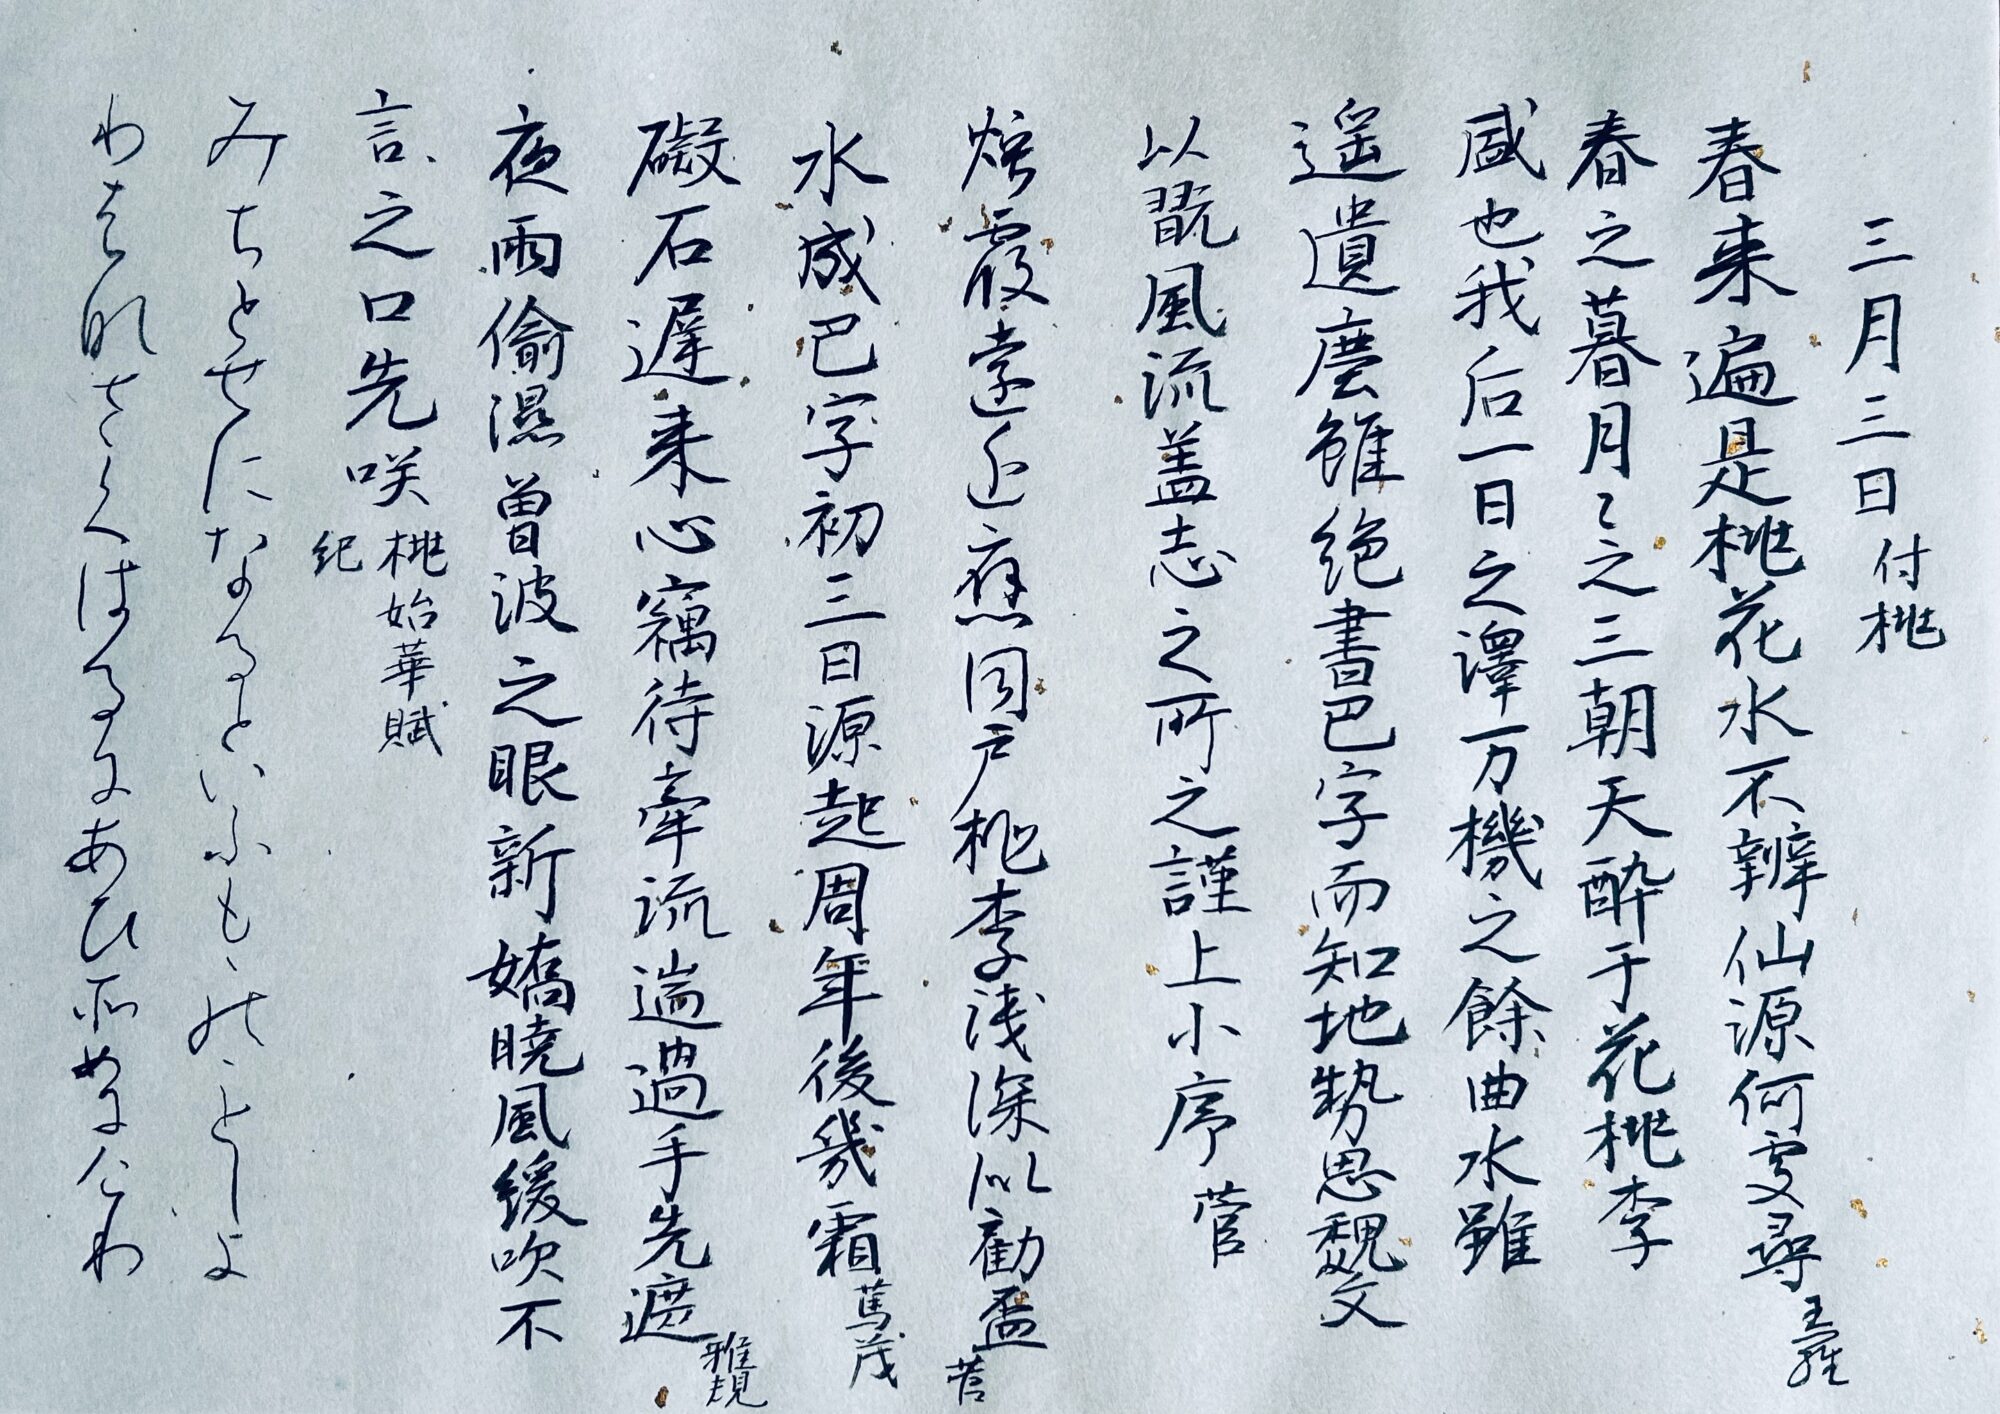 三月三日 付桃
春来遍是桃花水不辨仙源何處尋 王維
春之暮月〻之三朝天酔于花桃李
盛也我后一日之澤万機之餘曲水雖
遥遺塵雖絶書巴字而知地勢思魏文
以翫風流盖志之所之謹上小序 菅
烟霞遠近應同戸桃李浅深似勧盃 菅
水成巴字初三日源起周年後幾霜 篤茂
礙石遅来心竊待牽流遄過手先遮 雅規
夜雨偸濕曽波之眼新嬌暁風緩吹不
言之口先咲 桃始華賦 紀
みちとせになるといふもゝのことしよ
りはなさくはるにあひそめにけり